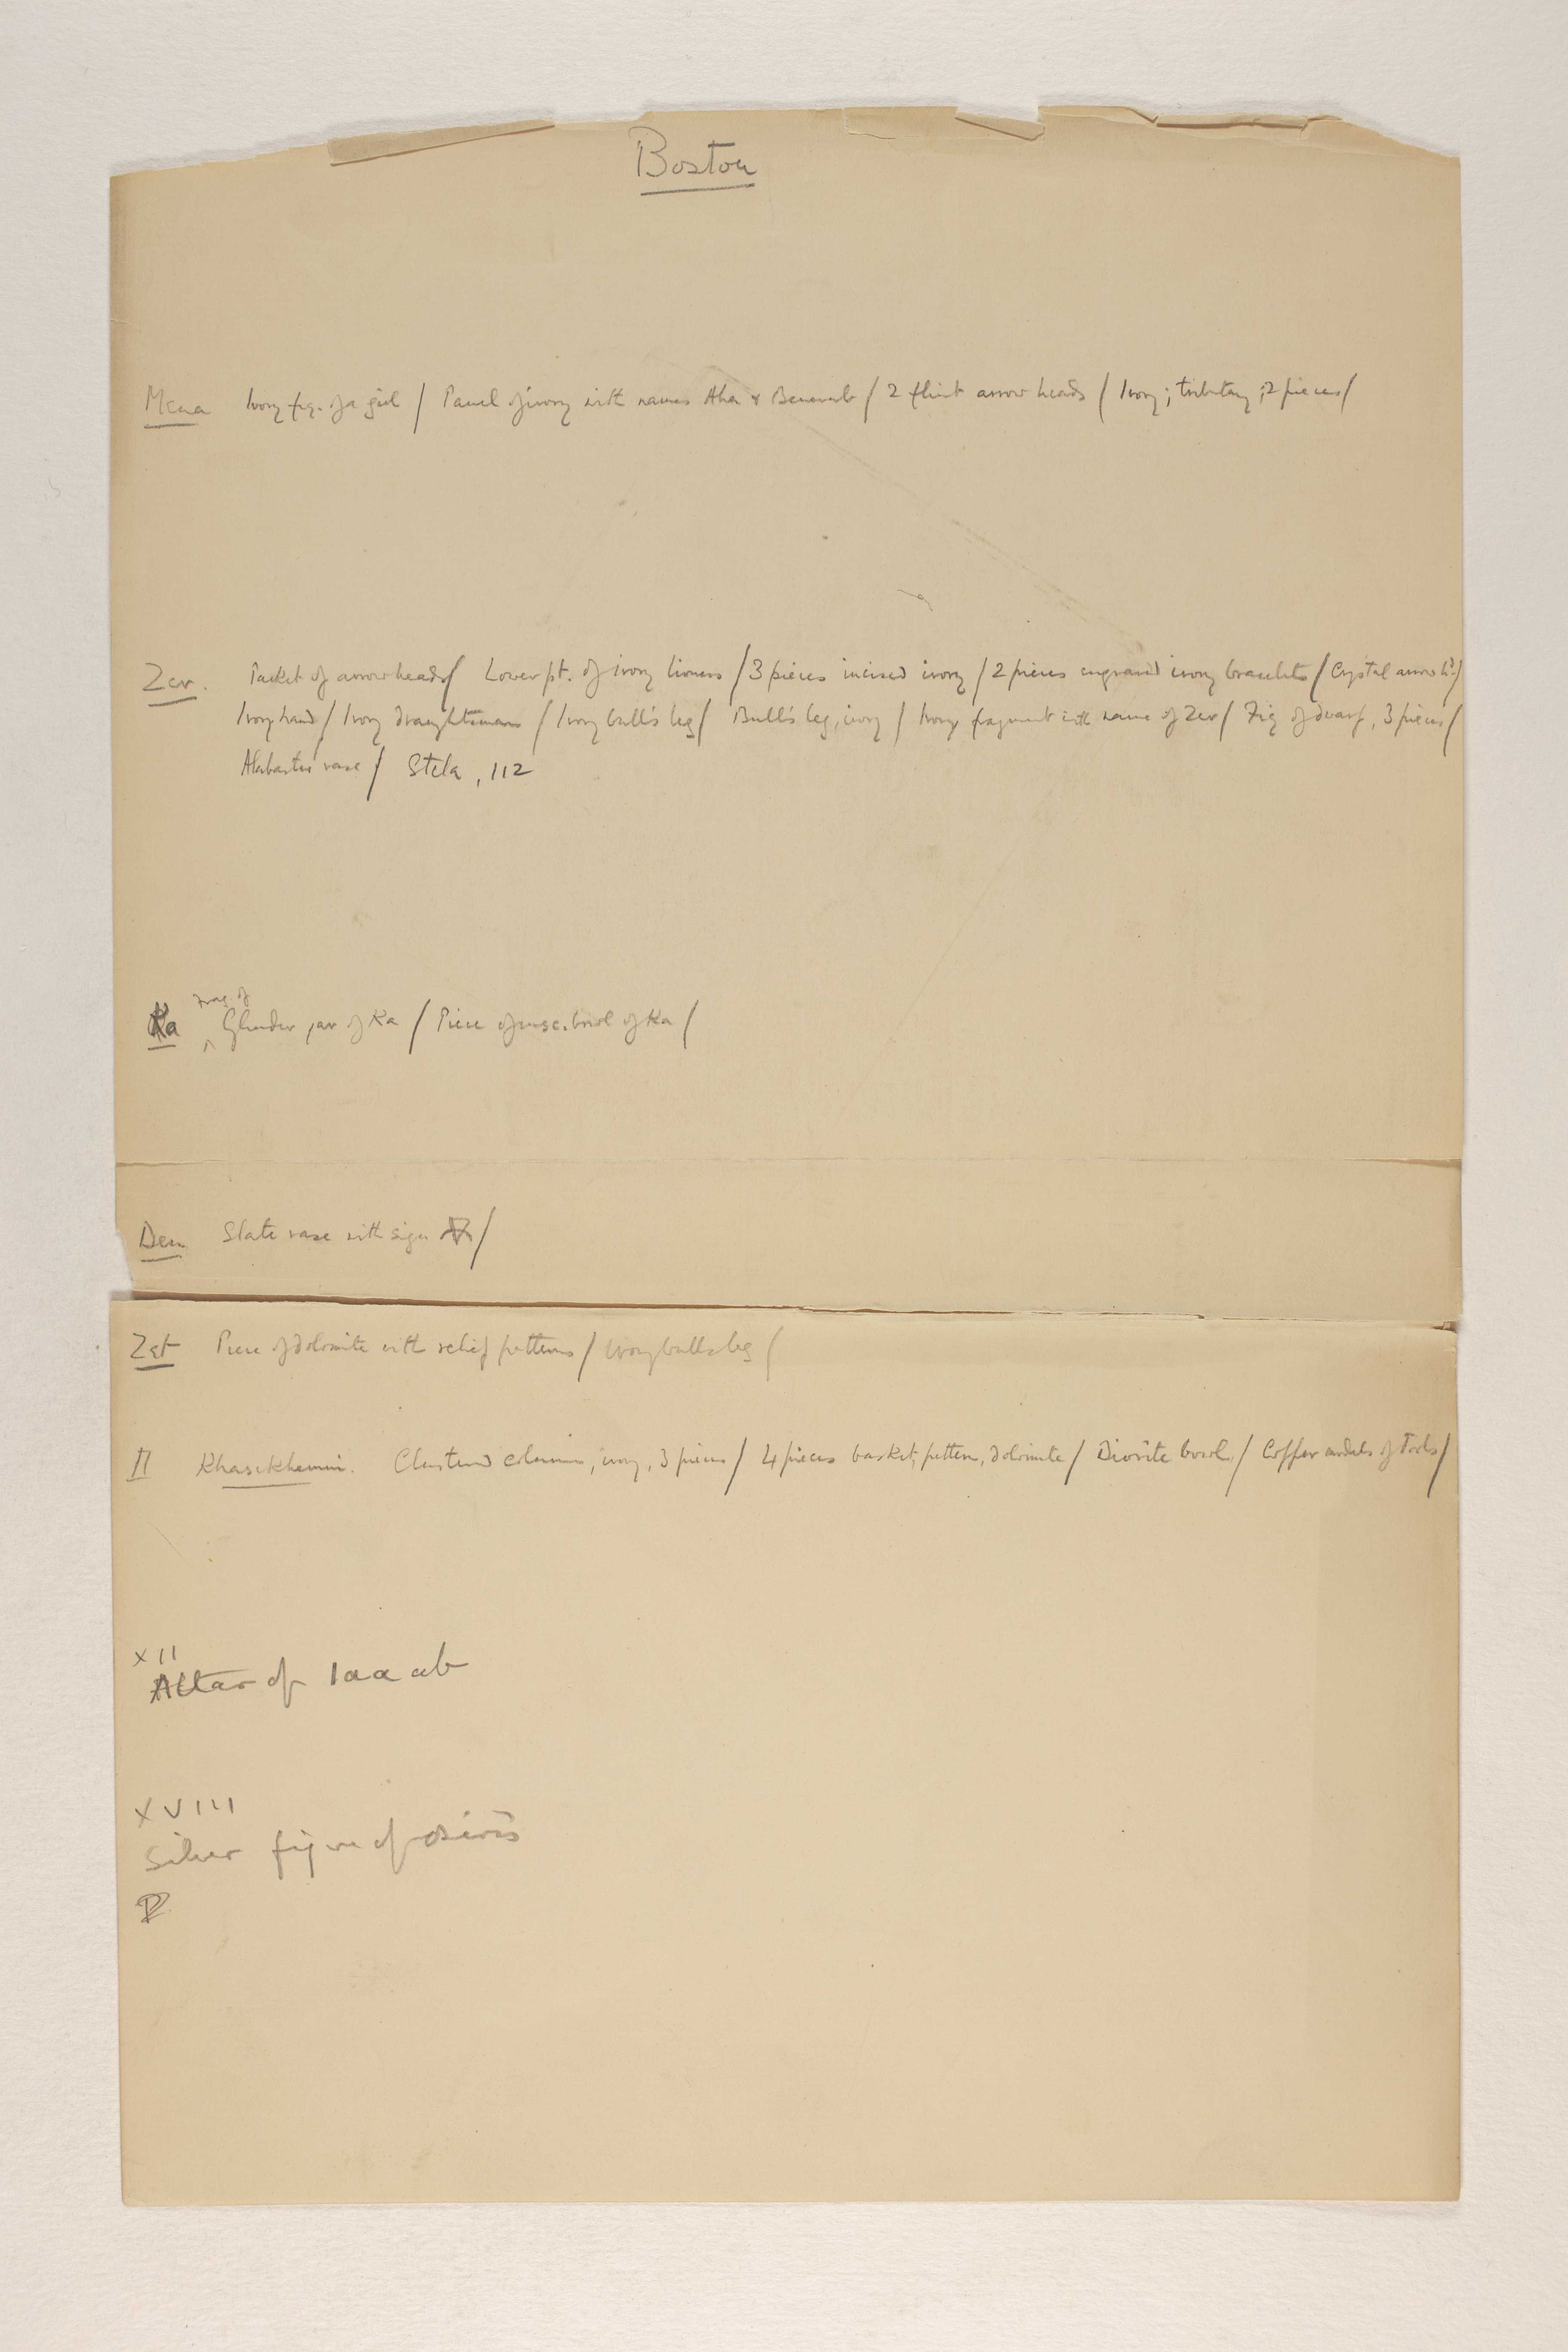 Boston
Mena Ivory fig. of a girl / Panel of ivory with names Aha & Benerab / 2 flint arrow heads / Ivory; tributary; 2 pieces /
Zer. Packet of arrowheads / Lower pt. of ivory lioness / 3 pieces incised ivory / 2 pieces engraved ivory bracelets / Crystal arrow hd /
Ivory hand / Ivory draughtsman / Ivory bull's leg / Bull's leg, ivory / Ivory fragment with name of Zer / Fig of dwarf, 3 pieces /
Alabaster vase / Stela, 112
Frag of
Ka Cylinder jar of Ka / Piece of insc. bowl of Ka /
Den Slate vase with sign /
Zet Piece of dolomite with relief patterns / Ivory bull's leg /
II Khasekhemui. Clustered columns, ivory, 3 pieces / 4 pieces basket pattern, dolomite / Diorite bowl / Copper models of Tools /
XII
Altar of Iaa ab
XVIII
Silver figure of osiris